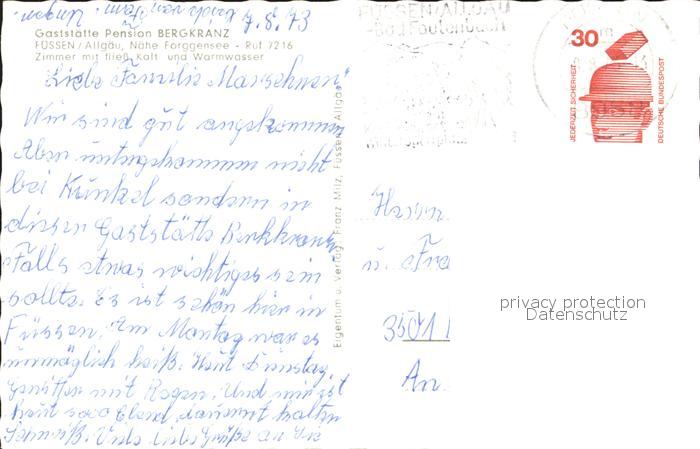 7.8.73
Gaststätte Pension BERGKRANZ
FÜSSEN/Allgäu, Nähe Forggensee - Ruf 7216
Zimmer mit fließ. Kalt- und Warmwasser
Liebe Familie
Wir sind gut angekommen
Aber untergekommen nicht
bei Künkel sondern in
dieser Gaststätte Berkkranz
Falls etwas wichtiges sein
sollte. Es ist schön hier in
Füssen. Am Montag war es
unmöglich heiß. Heut Dienstag,
Gewitter mit Regen. Und mir ist
heut sooo Elend, dauernt kalten
Schweiß. Viele liebe Grüße an Sie
Eigentum u. Verlag: Franz Milz, Füssen/Allgäu
FÜSSEN/ALLGÄU
30
JEDERZEIT SICHERHEIT
DEUTSCHE BUNDESPOST
Herrn
u. Fra
3501
An
privacy protection
Datenschutz